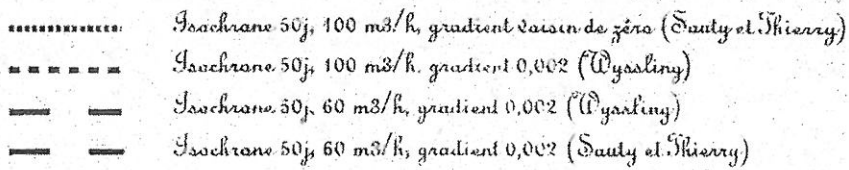 Isochrone 50j, 100 m3/h, gradient voisin de zéro (Sauty et Thierry)
Isochrone 50j, 100 m3/h. gradient 0,002 (Wyssling)
Isochrone 50j, 60 m3/h, gradient 0,002 (Wyssling)
Isochrone 50j, 60 m3/h, gradient 0,002 (Sauty et Thierry)